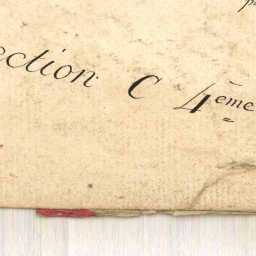 ection C 4ème